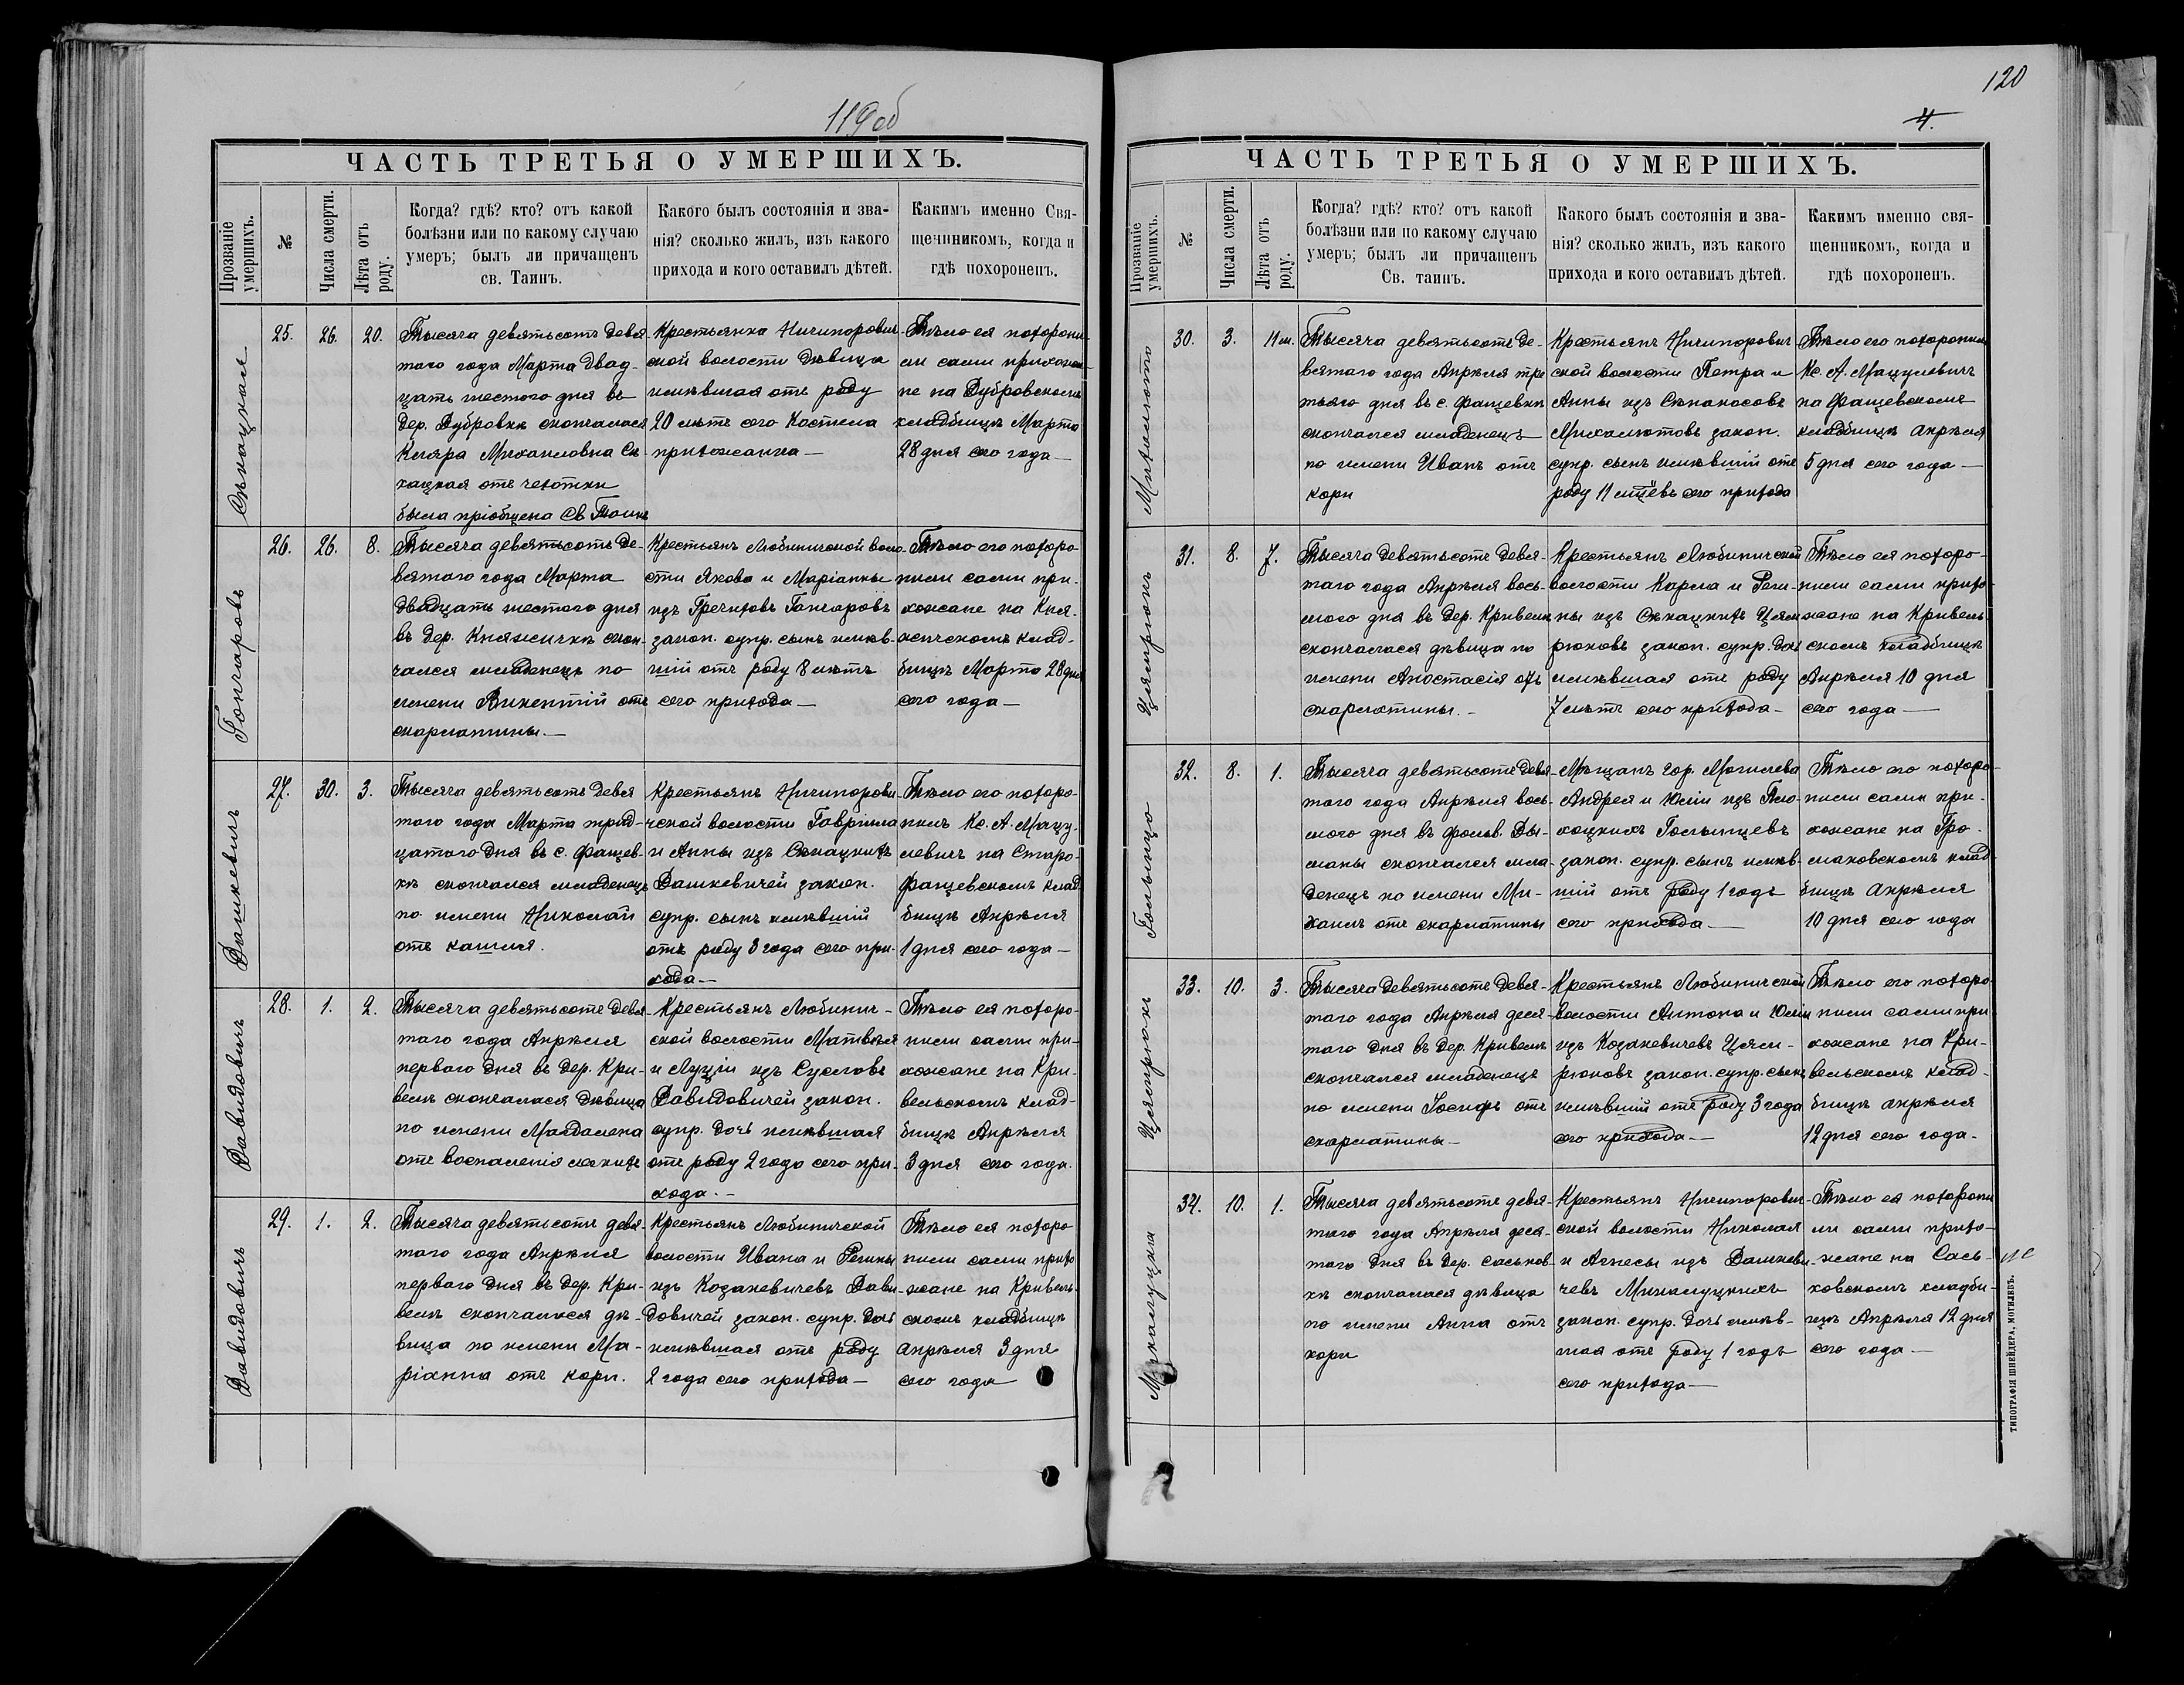 119 об
ЧАСТЬ ТРЕТЬЯ О УМЕРШИХЪ.
Прозваніе умершихъ.
№
Числа смерти.
Лѣта отъ роду.
Когда? гдѣ? кто? отъ какой
болѣзни или по какому случаю
умеръ; былъ ли причащенъ
св. Таинъ.
Какого былъ состоянія и зва-
нія? сколько жилъ, изъ какого
прихода и кого оставилъ дѣтей.
Какимъ именно Свя-
щенникомъ, когда и
гдѣ похороненъ.
Сѣкацкая
25.
26.
20.
Тысяча девятьсотъ девя
таго года Марта двад-
цать шестого дня въ
дер. Дубровкѣ скончалася
Кляра Михаиловна Сѣ-
кацкая отъ чехотки
была пріобщена Св Таинъ
Крестьянка Ничипорович-
ской волости дѣвица
имѣвшая отъ роду
20 лѣтъ сего Костела
прихожанка —
Тѣло ея похорони-
ли сами прихожа-
не на Дубровскомъ
кладбищѣ Марта
28 дня сего года —
Гончаровъ
26.
26.
8.
Тысяча девятьсотъ де-
вятаго года Марта
двадцать шестого дня
въ дер. Княжичкѣ скон-
чался младенецъ по
имени Викентій отъ
скарлатины. —
Крестьянъ Любиничской воло-
сти Якова и Маріанны
изъ Гречиховъ Гончаровъ
закон. супр. сынъ имѣв-
шій отъ роду 8 лѣтъ
сего прихода —
Тѣло его похоро-
нили сами при-
хожане на Кня-
жичскомъ клад-
бищѣ Марта 28 дня
сего года —
Дашкевичъ
27.
30.
3.
Тысяча девятьсотъ девя
таго года Марта трид-
цатаго дня въ с. Фащев-
кѣ скончался младенецъ
по имени Николай
отъ кашля.
Крестьянъ Ничипорови-
чской волости Гавріила
и Анны изъ Сѣкацкихъ
Дашкевичей закон.
супр. сынъ имѣвшій
отъ роду 3 года сего при-
хода —
Тѣло его похоро-
нилъ Кс. А. Мацу-
левичъ на Старо-
фащевскомъ клад-
бищѣ Апрѣля
1 дня сего года —
Давидовичъ
28.
1.
2.
Тысяча девятьсотъ девя-
таго года Апрѣля
перваго дня въ дер. Кри-
вель скончалася дѣвица
по имени Магдалена
отъ воспаленія легкихъ
Крестьянъ Любинич-
ской волости Матвѣя
и Луціи изъ Сусловъ
Давидовичей закон.
супр. дочь имѣвшая
отъ роду 2 года сего при-
хода. —
Тѣло ея похоро-
нили сами при-
хожане на Кри-
вельскомъ клад-
бищѣ Апрѣля
3 дня сего года.
Давидовичъ
29.
1.
2.
Тысяча девятьсотъ девя-
таго года Апрѣля
перваго дня въ дер. Кри-
вель скончалася дѣ-
вица по имени Ма-
ріанна отъ кори.
Крестьянъ Любиничской
волости Ивана и Регины
изъ Козакевичевъ Дави-
довичей закон. супр. дочь
имѣвшая отъ роду
2 года сего прихода —
Тѣло ея похоро-
нили сами прихо
жане на Кривель-
скомъ кладбищѣ
апрѣля 3 дня
сего года
120
4.
ЧАСТЬ ТРЕТЬЯ О УМЕРШИХЪ.
Прозваніе умершихъ.
№
Числа смерти.
Лѣта отъ роду.
Когда? гдѣ? кто? отъ какой
болѣзни или по какому случаю
умеръ; былъ ли причащенъ
Св. таинъ.
Какого былъ состоянія и зва-
нія? сколько жилъ, изъ какого
прихода и кого оставилъ дѣтей.
Какимъ именно свя-
щенникомъ, когда и
гдѣ похороненъ.
30.
3.
11 м.
Тысяча девятьсотъ де-
вятаго года Апрѣля тре
тьяго дня въ с. Фащевкѣ
скончался младенецъ
по имени Иванъ отъ
кори
Крестьянъ Ничипорович
ской волости Петра и
Анны изъ Сѣнакосовъ
Михалютовъ закон.
супр. сынъ имѣвшій отъ
роду 11 мцевъ сего прихода
Тѣло его похоронилъ
Кс. А. Мацулевичъ
на Фащевскомъ
кладбищѣ апрѣля
5 дня сего года —
Цямрюкъ
31.
8.
7.
Тысяча девятьсотъ девя-
таго года Апрѣля вось-
мого дня въ дер. Кривель
скончалася дѣвица по
имени Анастасія отъ
скарлатины. —
Крестьянъ Любиничской
волости Карла и Реги-
ны изъ Сѣкацкихъ Цям-
рюковъ закон. супр. дочь
имѣвшая отъ роду
7 лѣтъ сего прихода —
Тѣло ея похоро-
нили сами прихо-
жане на Кривель-
скомъ кладбищѣ
Апрѣля 10 дня
сего года —
Голынцо
32.
8.
1.
Тысяча девятьсотъ девя-
таго года Апрѣля вось-
мого дня въ фольв. Ды-
маны скончался мла-
денецъ по имени Ми-
хаилъ отъ скарлатины
Мѣщанъ гор. Могилева
Андрея и Юліи изъ
Голынцевъ
закон. супр. сынъ имѣв-
шій отъ роду 1 годъ
сего прихода —
Тѣло его похоро-
нили сами при-
хожане на Гро-
маковскомъ клад-
бищѣ апрѣля
10 дня сего года
33.
10.
3.
Тысяча девятьсотъ девя-
таго года Апрѣля деся-
таго дня въ дер. Кривель
скончался младенецъ
по имени Іосифъ отъ
скарлатины —
Крестьянъ Любиничской
волости Антона и Юліи
изъ Козакевичевъ Цям-
рюковъ закон. супр. сынъ
имѣвшій отъ роду 3 года
сего прихода —
Тѣло его похоро-
нили сами при
хожане на Кри-
вельскомъ клад-
бищѣ апрѣля
12 дня сего года.
34.
10.
1.
Тысяча девятьсотъ девя-
таго года Апрѣля деся-
таго дня въ дер. Саськов-
кѣ скончалася дѣвица
по имени Анна отъ
кори
Крестьянъ Ничипорович-
ской волости Николая
и Агнесы изъ Дашкеви-
чевъ Михалуцкихъ
закон. супр. дочь имѣв-
шая отъ роду 1 годъ
сего прихода —
Тѣло ея похорони
ли сами прихо-
жане на Сась-
ковскомъ кладби-
щѣ Апрѣля 12 дня
сего года —
ТИПОГРАФІЯ ШНЕЙДЕРА, МОГИЛЕВЪ.